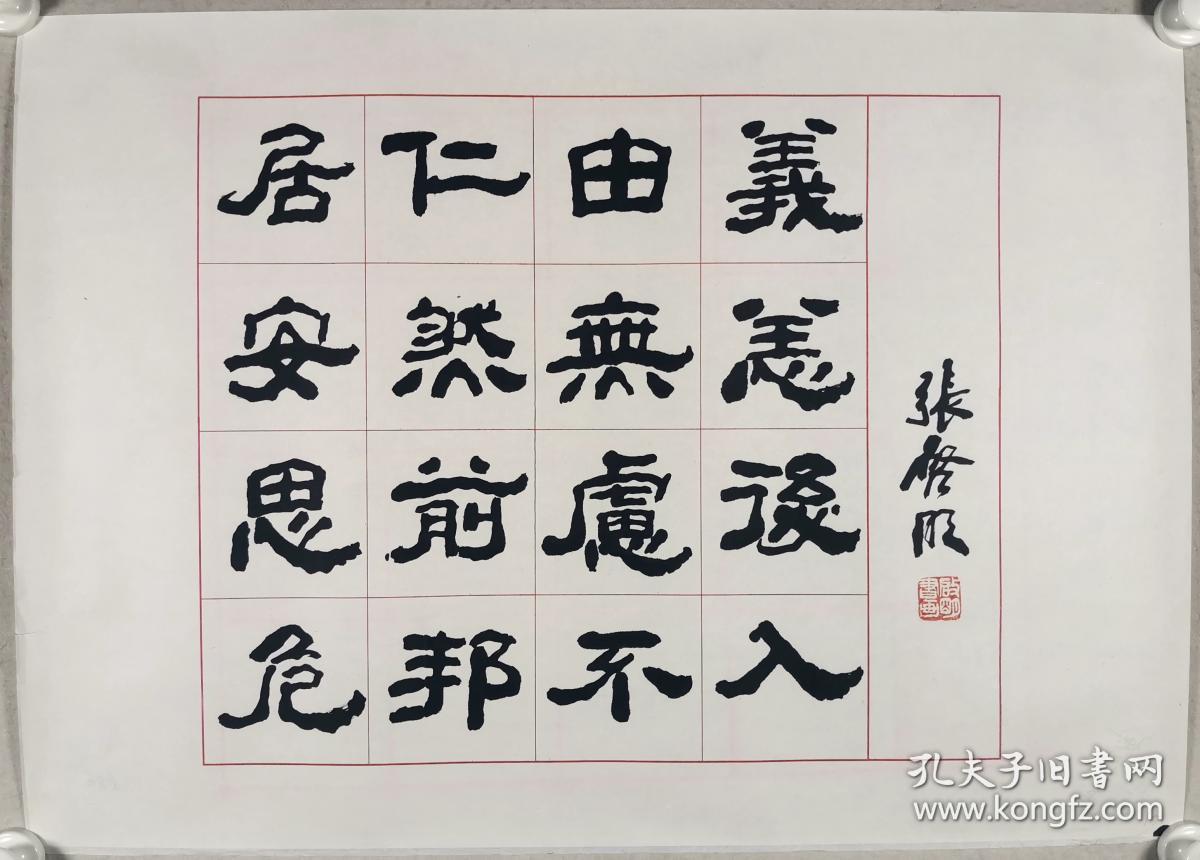 居仁由義
安然無恙
思前慮後
危邦不入
張啓明
啟明書画
孔夫子旧書网
www.kongfz.com